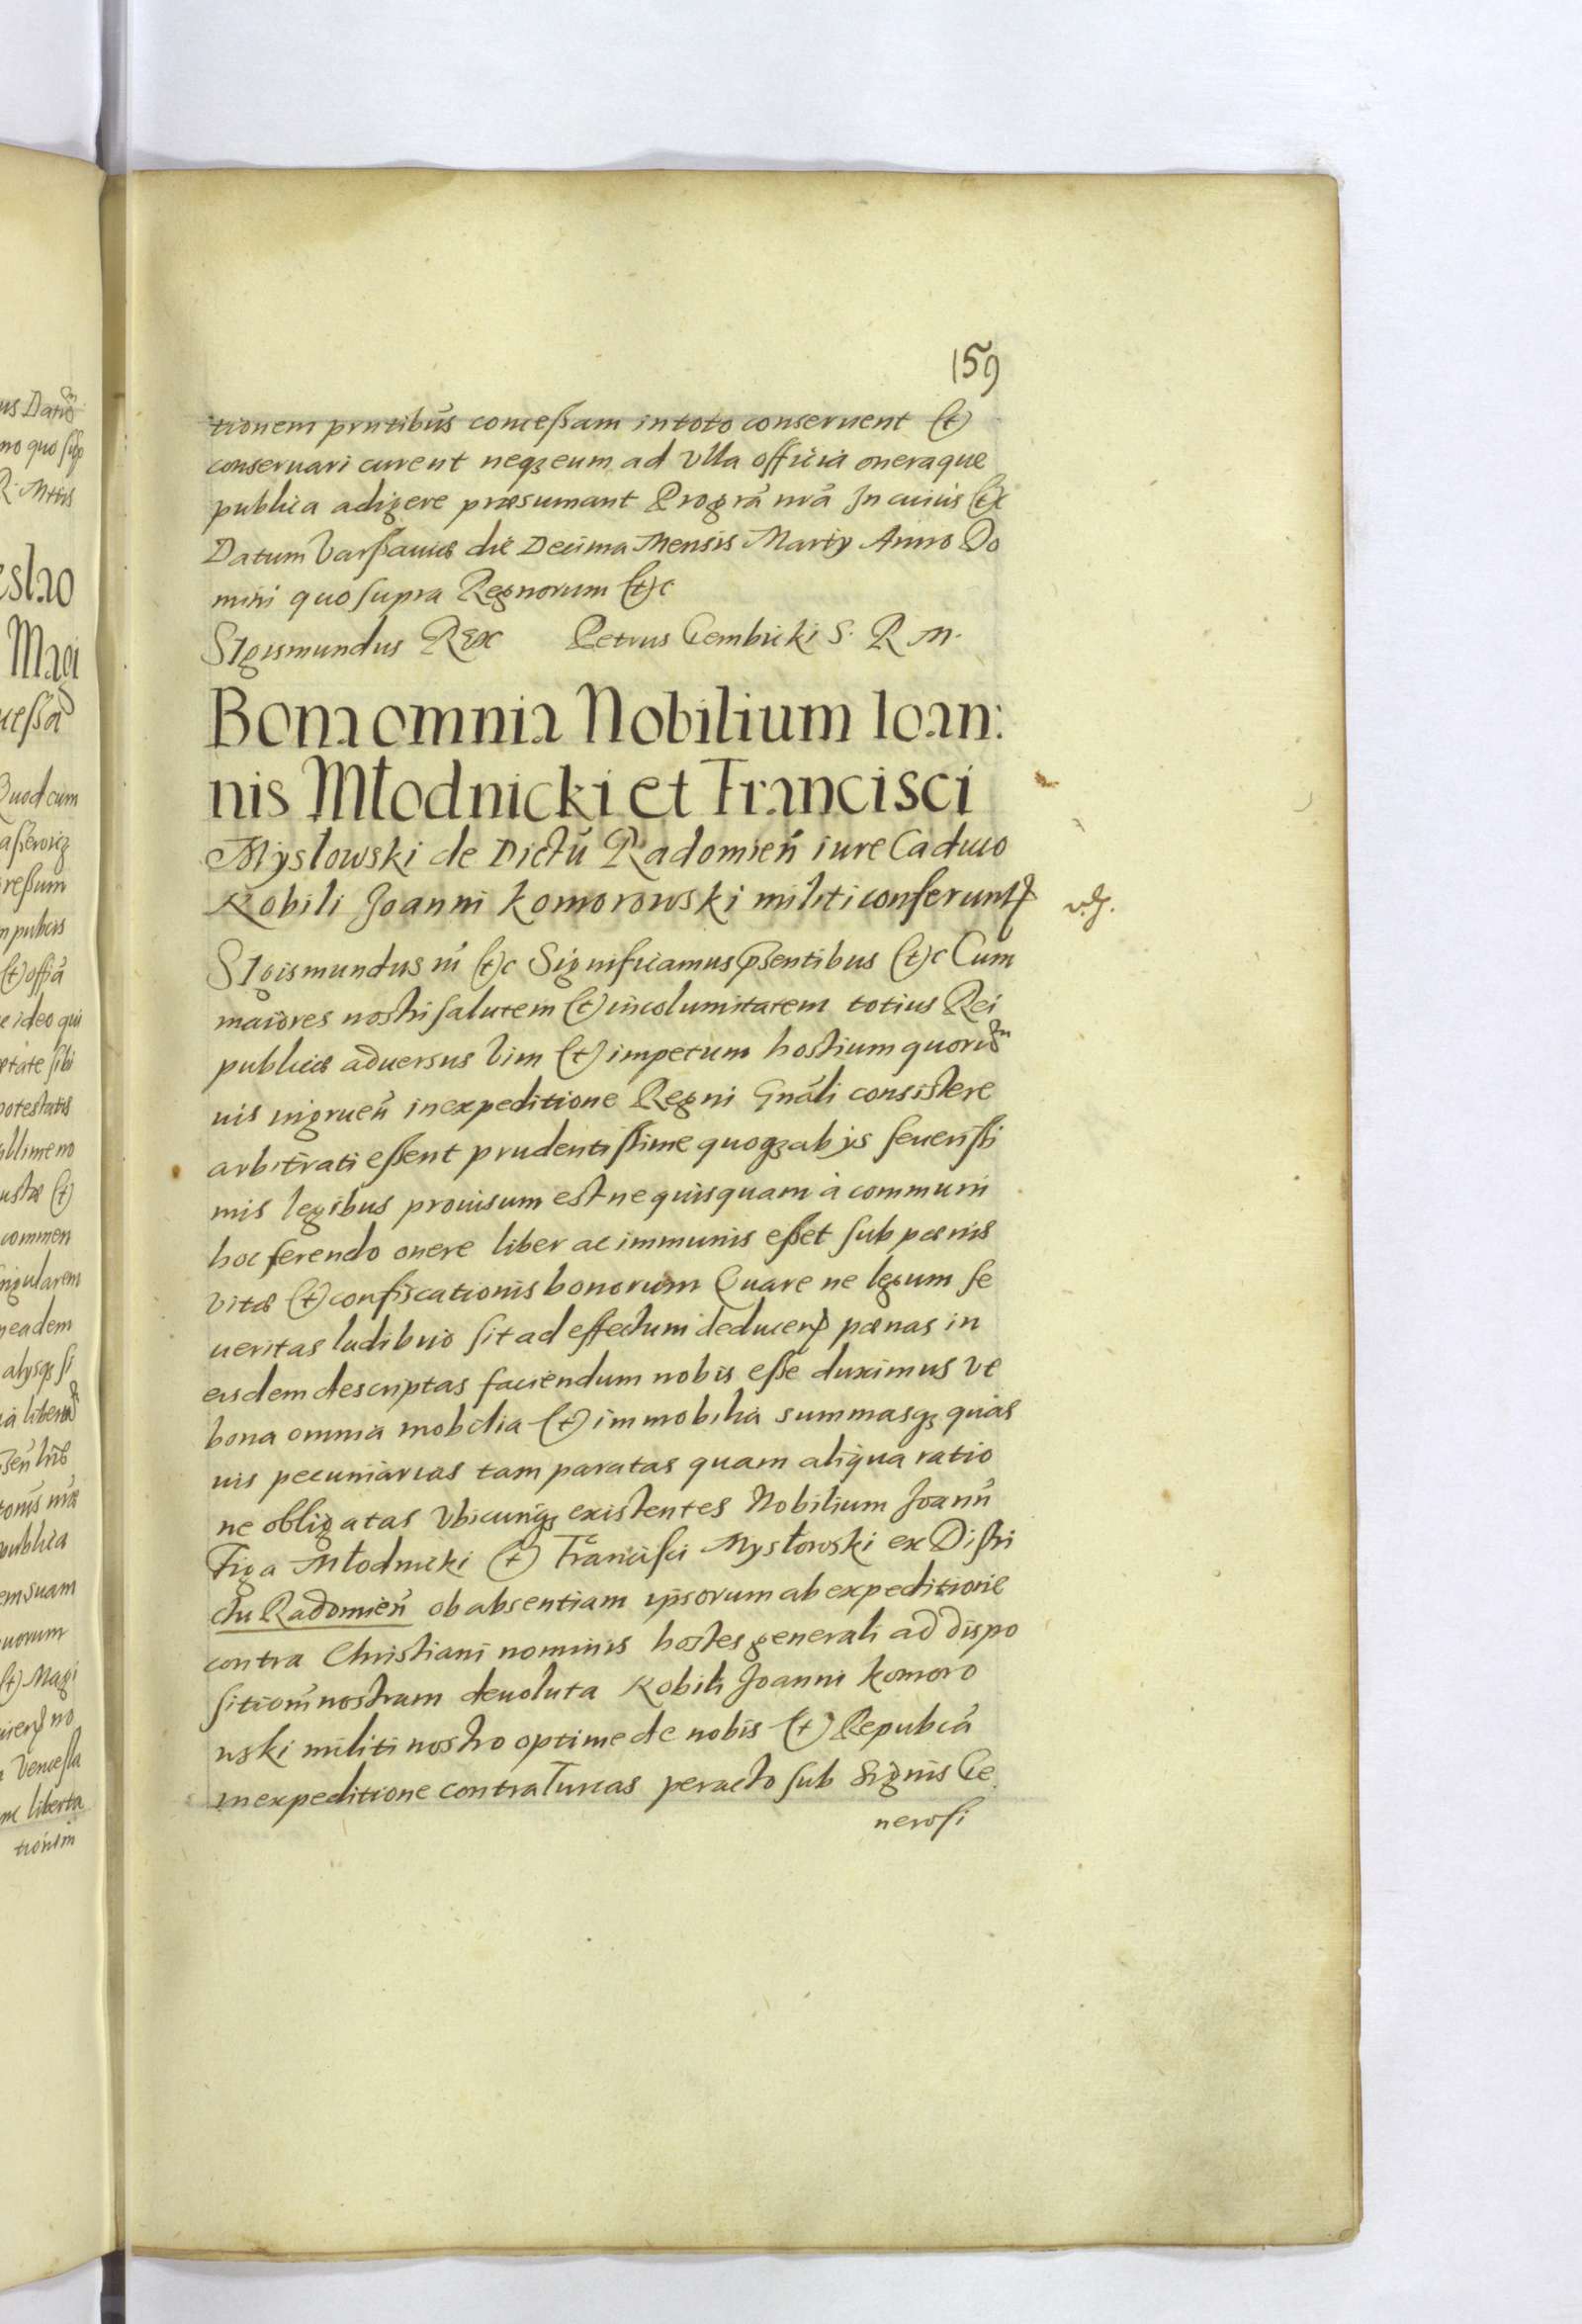 159
tionem prntibus concessam in toto conseruent et
conseruari curent neqz eum ad vlla officia oneraque
publica adigere præsumant Pro grã nrã In cuius etc
Datum Varsauiæ die Decima Mensis Martij Anno Do
mini quo supra Regnorum etc
Sigismundus Rex Petrus Gembicki S. R. M.
Bona omnia Nobilium Ioan:
nis Młodnicki et Francisci
Mysłowski de Dictũ Radomień iure Caduco
Nobili Joanni Komorowski militi conferunt
Sigismundus iii etc Significamus psentibus etc Cum
maiores nostri salutem et incolumitatem totius Rei
publicæ aduersus vim et impetum hostium quorũ
uis ingrueñ in expeditione Regni Gnãli consistere
arbitrati essent prudentissime quoqz ab ijs seuerissi
mis legibus prouisum est ne quisquam à communi
hoc ferendo onere liber ac immunis esset sub pænis
vitæ et confiscationis bonorum Quare ne legum se
ueritas ludibrio sit ad effectum deducend pænas in
eisdem descriptas faciendum nobis esse duximus vt
bona omnia mobilia et immobilia summasqz quas
uis pecuniarias tam paratas quam aliqua ratio
ne obligatas vbicunqz existentes Nobilium Joanñ
Figa Młodnicki et Francisci Mysłowski ex Distri
ctu Radomień ob absentiam ipsorum ab expeditione
contra Christiani nominis hostes generali ad dispo
sitiom̃ nostram deuoluta Nobili Joanni Komoro
wski militi nostro optime de nobis et Repubcã
in expeditione contra Turcas peracto sub signis Ge
nerosi